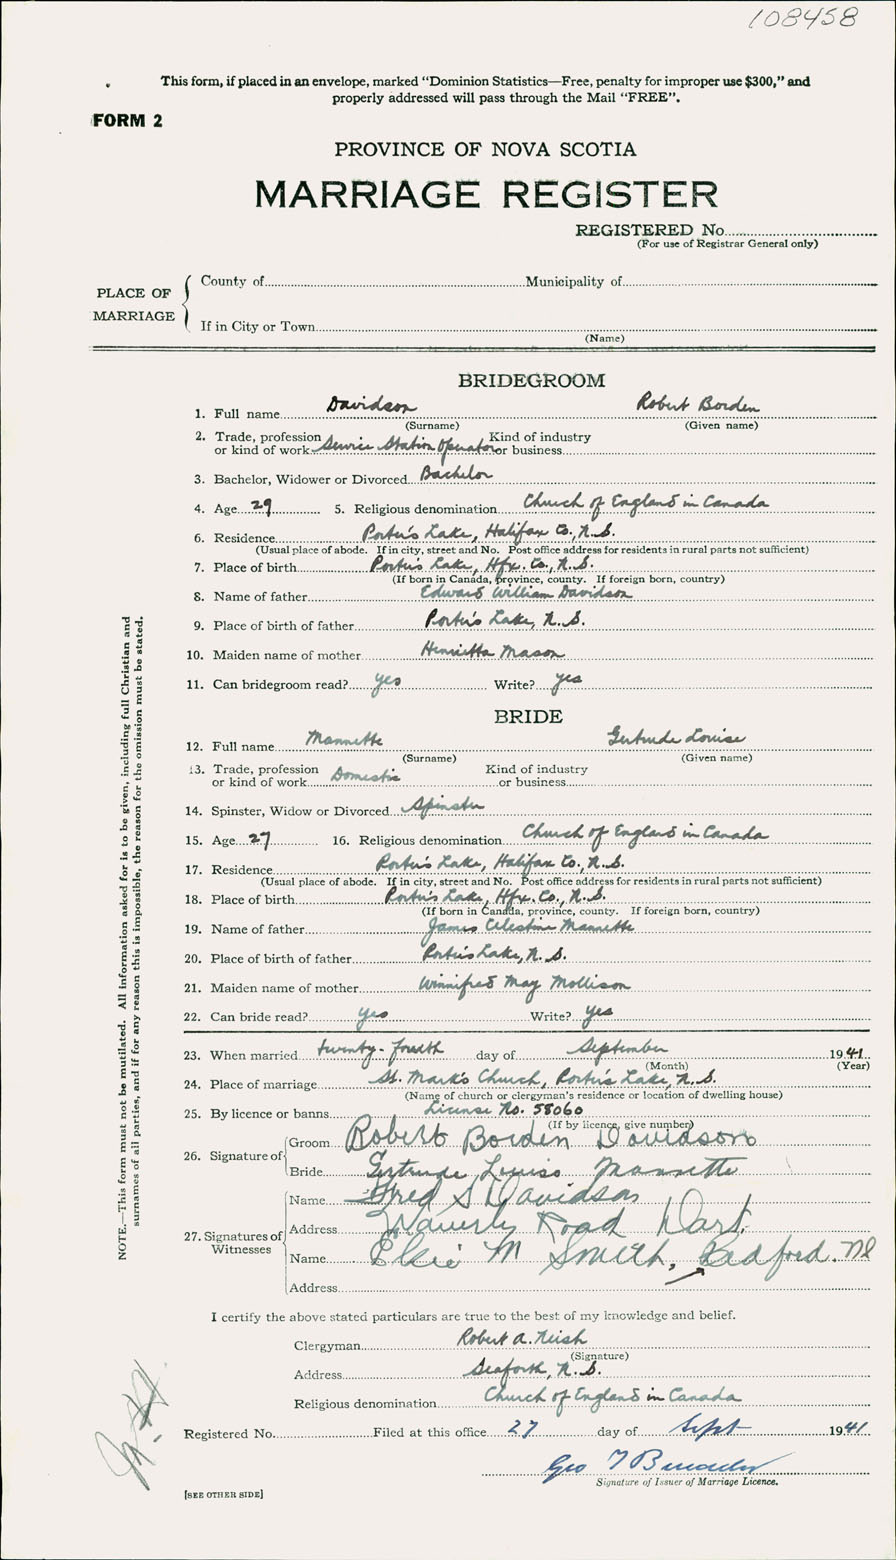 108458
This form, if placed in an envelope, marked “Dominion Statistics—Free, penalty for improper use $300,” and
properly addressed will pass through the Mail “FREE”.
FORM 2
PROVINCE OF NOVA SCOTIA
MARRIAGE REGISTER
REGISTERED No.
(For use of Registrar General only)
PLACE OF MARRIAGE
County of Municipality of
If in City or Town
(Name)
BRIDEGROOM
1. Full name Davidson Robert Borden
(Surname) (Given name)
2. Trade, profession Kind of industry
or kind of work Service Station Operator or business
3. Bachelor, Widower or Divorced Bachelor
4. Age 29 5. Religious denomination Church of England in Canada
6. Residence Porter's Lake, Halifax Co., N.S.
(Usual place of abode. If in city, street and No. Post office address for residents in rural parts not sufficient)
7. Place of birth Porter's Lake, Hfx. Co., N.S.
(If born in Canada, province, county. If foreign born, country)
8. Name of father Edward William Davidson
9. Place of birth of father Porter's Lake, N.S.
10. Maiden name of mother Henrietta Mason
11. Can bridegroom read? yes Write? yes
BRIDE
12. Full name Mannette Gertrude Louise
(Surname) (Given name)
13. Trade, profession Kind of industry
or kind of work Domestic or business
14. Spinster, Widow or Divorced Spinster
15. Age 27 16. Religious denomination Church of England in Canada
17. Residence Porter's Lake, Halifax Co., N.S.
(Usual place of abode. If in city, street and No. Post office address for residents in rural parts not sufficient)
18. Place of birth Porter's Lake, Hfx. Co., N.S.
(If born in Canada, province, county. If foreign born, country)
19. Name of father James Celestine Mannette
20. Place of birth of father Porter's Lake, N.S.
21. Maiden name of mother Winnifred May Mollison
22. Can bride read? yes Write? yes
23. When married twenty-fourth day of September 1941
(Month) (Year)
24. Place of marriage St. Mark's Church, Porter's Lake, N.S.
(Name of church or clergyman's residence or location of dwelling house)
25. By licence or banns License No. 58060
(If by licence, give number)
26. Signature of Groom Robert Borden Davidson
Bride Gertrude Louise Mannette
27. Signatures of Witnesses
Name Fred S Davidson
Address Waverly Road Dart.
Name Elsie M Smith, Bedford. NS
Address
I certify the above stated particulars are true to the best of my knowledge and belief.
Clergyman Robert A. Neish
(Signature)
Address Seaforth, N.S.
Religious denomination Church of England in Canada
Registered No. Filed at this office 27 day of Sept 1941
Geo T
Signature of Issuer of Marriage Licence.
[SEE OTHER SIDE]
NOTE.—This form must not be mutilated. All information asked for is to be given, including full Christian and
surnames of all parties, and if for any reason this is impossible, the reason for the omission must be stated.